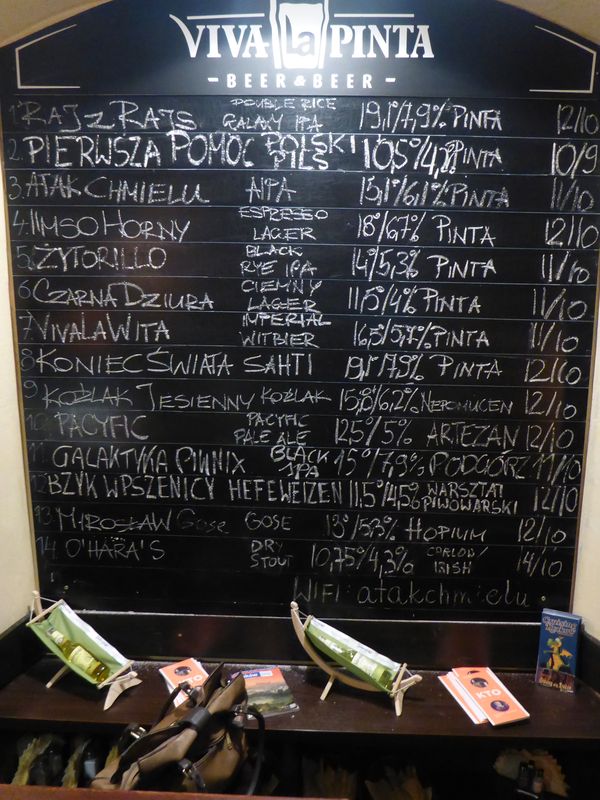 VIVA La PINTA
- BEER & BEER -
1. RAJ Z RAJS DOUBLE RICE GALAXY IPA 19,1°/7,9% PINTA 12/10
2. PIERWSZA POMOC POLSKI PILS 10,5°/4,1% PINTA 10/9
3. ATAK CHMIELU AIPA 15,1°/6,1% PINTA 11/10
4. IIMSO HORNY ESPRESSO LAGER 18°/6,7% PINTA 12/10
5. ŻYTORILLO BLACK RYE IPA 14°/5,3% PINTA 11/10
6. CZARNA DZIURA CIEMNY LAGER 11,5°/4% PINTA 11/10
7. VIVA LA WITA IMPERIAL WITBIER 16,5°/5,7% PINTA 11/10
8. KONIEC ŚWIATA SAHTI 19,1°/7,9% PINTA 12/10
9. KOŹLAK JESIENNY KOŹLAK 15,8°/6,2% NEPOMUCEN 12/10
10. PACYFIC PACYFIC PALE ALE 12,5°/5% ARTEZAN 12/10
11. GALAKTYKA PIWNIX BLACK IPA 15°/7,9% PODGÓRZ 11/10
12. BZYK W PSZENICY HEFEWEIZEN 11,5°/4,5% WARSZTAT PIWOWARSKI 12/10
13. MIROSŁAW Gose GOSE 13°/5,3% HOPIUM 12/10
14. O'HARA'S DRY STOUT 10,75°/4,3% CARLOW/ IRISH 14/10
WIFI: atakchmielu
KTO
KTO